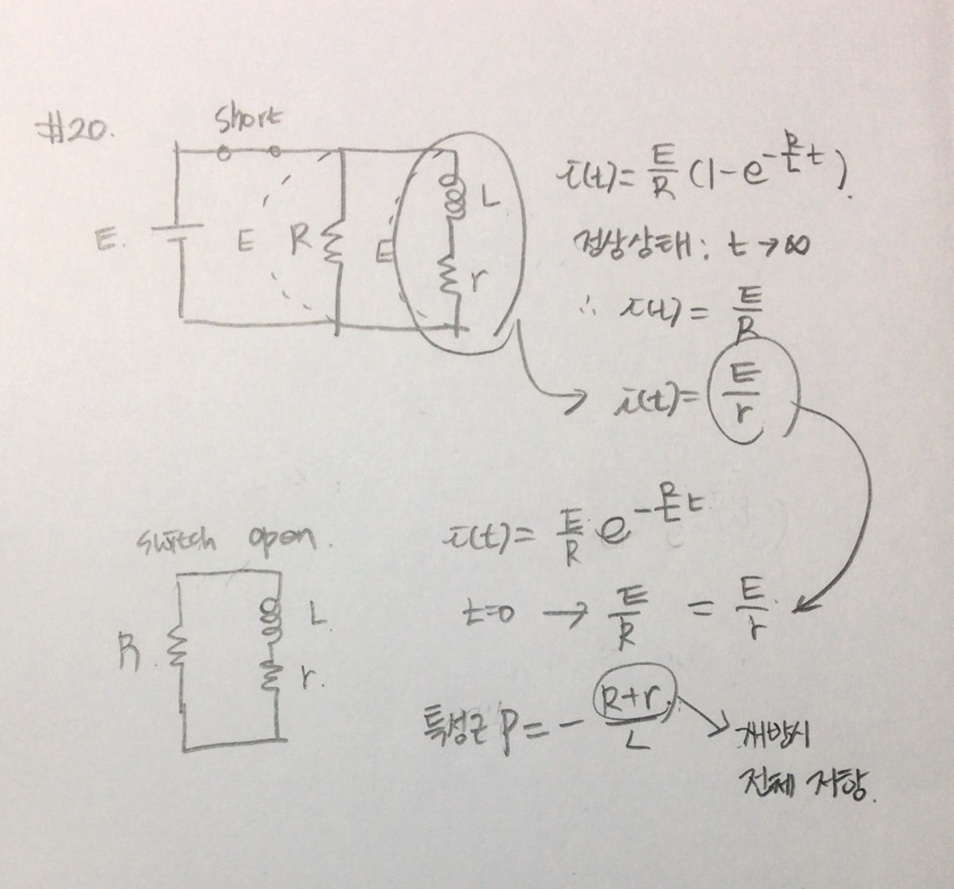 #20.
short
E.
E
R
E
L
r
i(t) = E/R (1 - e^{-R/L t}).
정상상태 : t → ∞
∴ i(t) = E/R
i(t) = E/r
switch open.
R.
L.
r.
i(t) = E/R e^{-R/L t}
t=0 → E/R = E/r
특성근 P = - (R+r)/L
개방시
전체 저항.